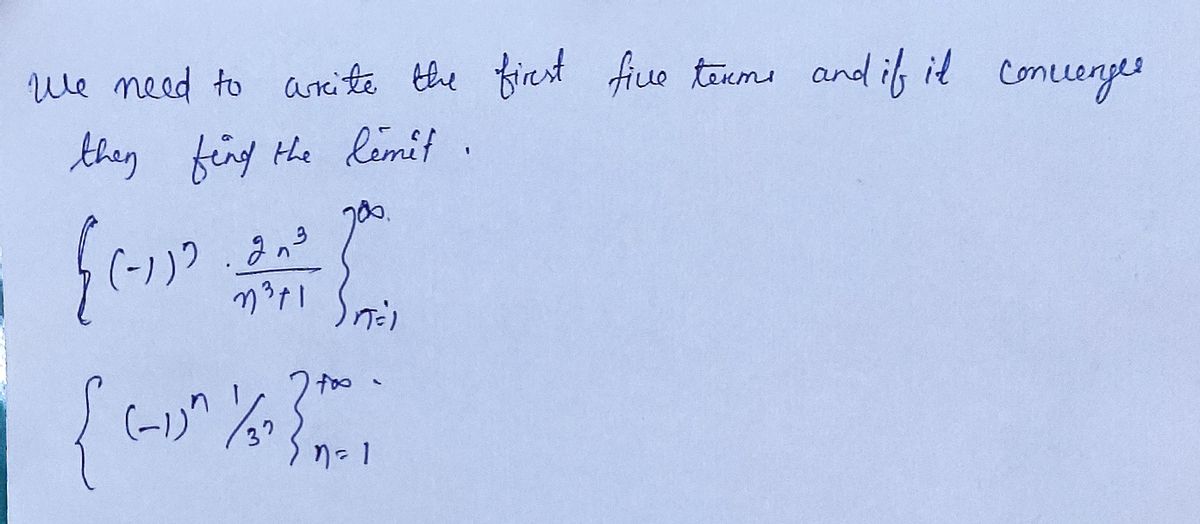 We need to write the first five terms and if it converges
then find the limit .
{ (-1)ⁿ . 2n³/n³+1 }∞ n=1
{ (-1)ⁿ 1/3ⁿ }+∞ n=1